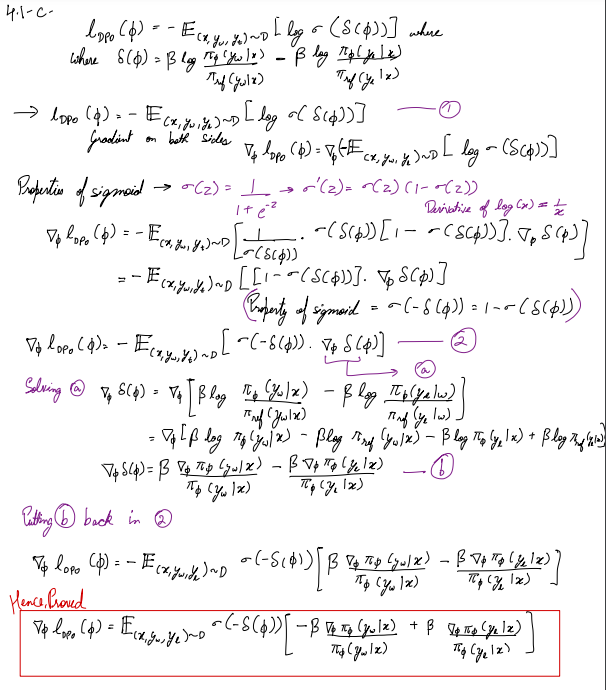 4.1-c-
l_DPO (ϕ) = - 𝔼_(x, y_w, y_l)~D [ log σ (δ(ϕ)) ] where
where δ(ϕ) = β log π_ϕ(y_w|x) / π_ref(y_w|x) - β log π_ϕ(y_l|x) / π_ref(y_l|x)
→ l_DPO (ϕ) = - 𝔼_(x, y_w, y_l)~D [ log σ( δ(ϕ)) ] — ①
Gradient on both sides ∇_ϕ l_DPO (ϕ) = ∇_ϕ(-𝔼_(x, y_w, y_l)~D [ log σ(δ(ϕ)) ]
Properties of sigmoid → σ(z) = 1 / 1 + e^-z → σ'(z) = σ(z) (1 - σ(z))
Derivative of log(x) = 1/x
∇_ϕ l_DPO (ϕ) = - 𝔼_(x, y_w, y_l)~D [ 1 / σ(δ(ϕ)) · σ(δ(ϕ)) [ 1 - σ(δ(ϕ)) ] . ∇_ϕ δ(ϕ) ]
= - 𝔼_(x, y_w, y_l)~D [ [ 1 - σ(δ(ϕ)) ] . ∇_ϕ δ(ϕ) ]
(Property of sigmoid = σ(-δ(ϕ)) = 1 - σ(δ(ϕ)))
∇_ϕ l_DPO (ϕ) = - 𝔼_(x, y_w, y_l)~D [ σ(-δ(ϕ)) . ∇_ϕ δ(ϕ) ] — ②
ⓐ
Solving ⓐ ∇_ϕ δ(ϕ) = ∇_ϕ [ β log π_ϕ(y_w|x) / π_ref(y_w|x) - β log π_ϕ(y_l|w) / π_ref(y_l|w) ]
= ∇_ϕ [ β log π_ϕ(y_w|x) - β log π_ref(y_w|x) - β log π_ϕ(y_l|x) + β log π_ref(y_l|w)
∇_ϕ δ(ϕ) = β ∇_ϕ π_ϕ(y_w|x) / π_ϕ(y_w|x) - β ∇_ϕ π_ϕ(y_l|x) / π_ϕ(y_l|x) — ⓑ
Putting ⓑ back in ②
∇_ϕ l_DPO (ϕ) = - 𝔼_(x, y_w, y_l)~D σ(-δ(ϕ)) [ β ∇_ϕ π_ϕ(y_w|x) / π_ϕ(y_w|x) - β ∇_ϕ π_ϕ(y_l|x) / π_ϕ(y_l|x) ]
Hence, Proved
∇_ϕ l_DPO (ϕ) = 𝔼_(x, y_w, y_l)~D σ(-δ(ϕ)) [ -β ∇_ϕ π_ϕ(y_w|x) / π_ϕ(y_w|x) + β ∇_ϕ π_ϕ(y_l|x) / π_ϕ(y_l|x) ]